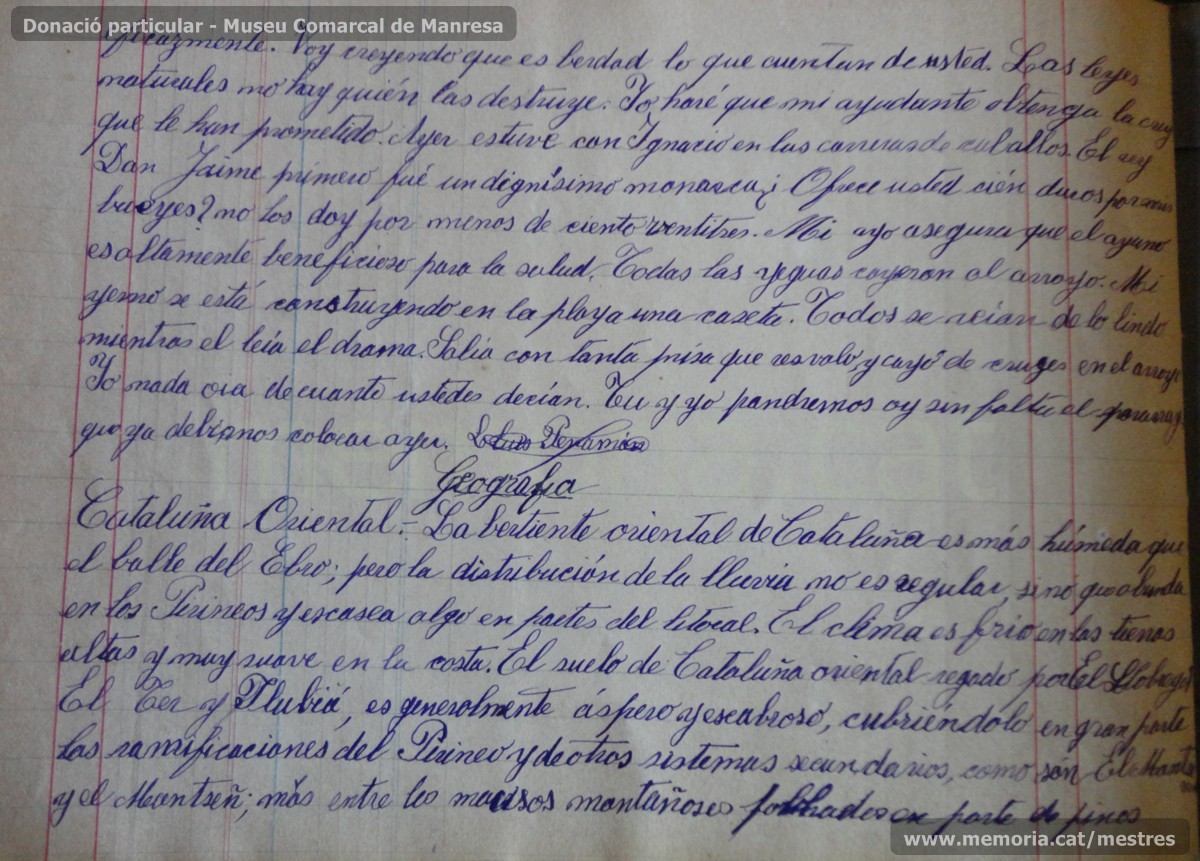 Donació particular - Museu Comarcal de Manresa
Voy creyendo que es berdad lo que cuentan de usted. Las leyes
naturales no hay quién las destruye. Yo haré que mi ayudante obtenga la cruz
que le han prometido. Ayer estuve con Ignacio en las carreras de caballos. El rey
Don Jaime primero fué un dignísimo monarca ¿ Ofrece usted cién duros por mis
bueyes? no los doy por menos de ciento ventitres. Mi ayo asegura que el ayuno
es altamente beneficioso para la salud. Todas las yeguas cayeron al arroyo. Mi
yerno se está construyendo en la playa una caseta. Todos se reian de lo lindo
mientras el leia el drama. Salia con tanta prisa que resvaló, y cayó de cruges en el arroyo
Yo nada oia de cuanto ustedes decían. Tu y yo pondremos oy sin falta el
que ya debianos colocar ayer.
Geografia
Cataluña Oriental.= La bertiente oriental de Cataluña es más húmeda que
el balle del Ebro; pero la distribución de la lluvia no es regular, sino que abunda
en los Pirineos y escasea algo en partes del litoral. El clima es frio en las tierras
altas y muy suave en la costa. El suelo de Cataluña oriental regado por El Llobregat
El Ter y Flubiá, es generolmente áspero y escabroso, cubriéndolo en gran parte
las ramificaciones del Pirineo y de otros sistemas secundarios, como són El
y el Montseñ; más entre los macisos montañosos poblados en parte de pinos
www.memoria.cat/mestres